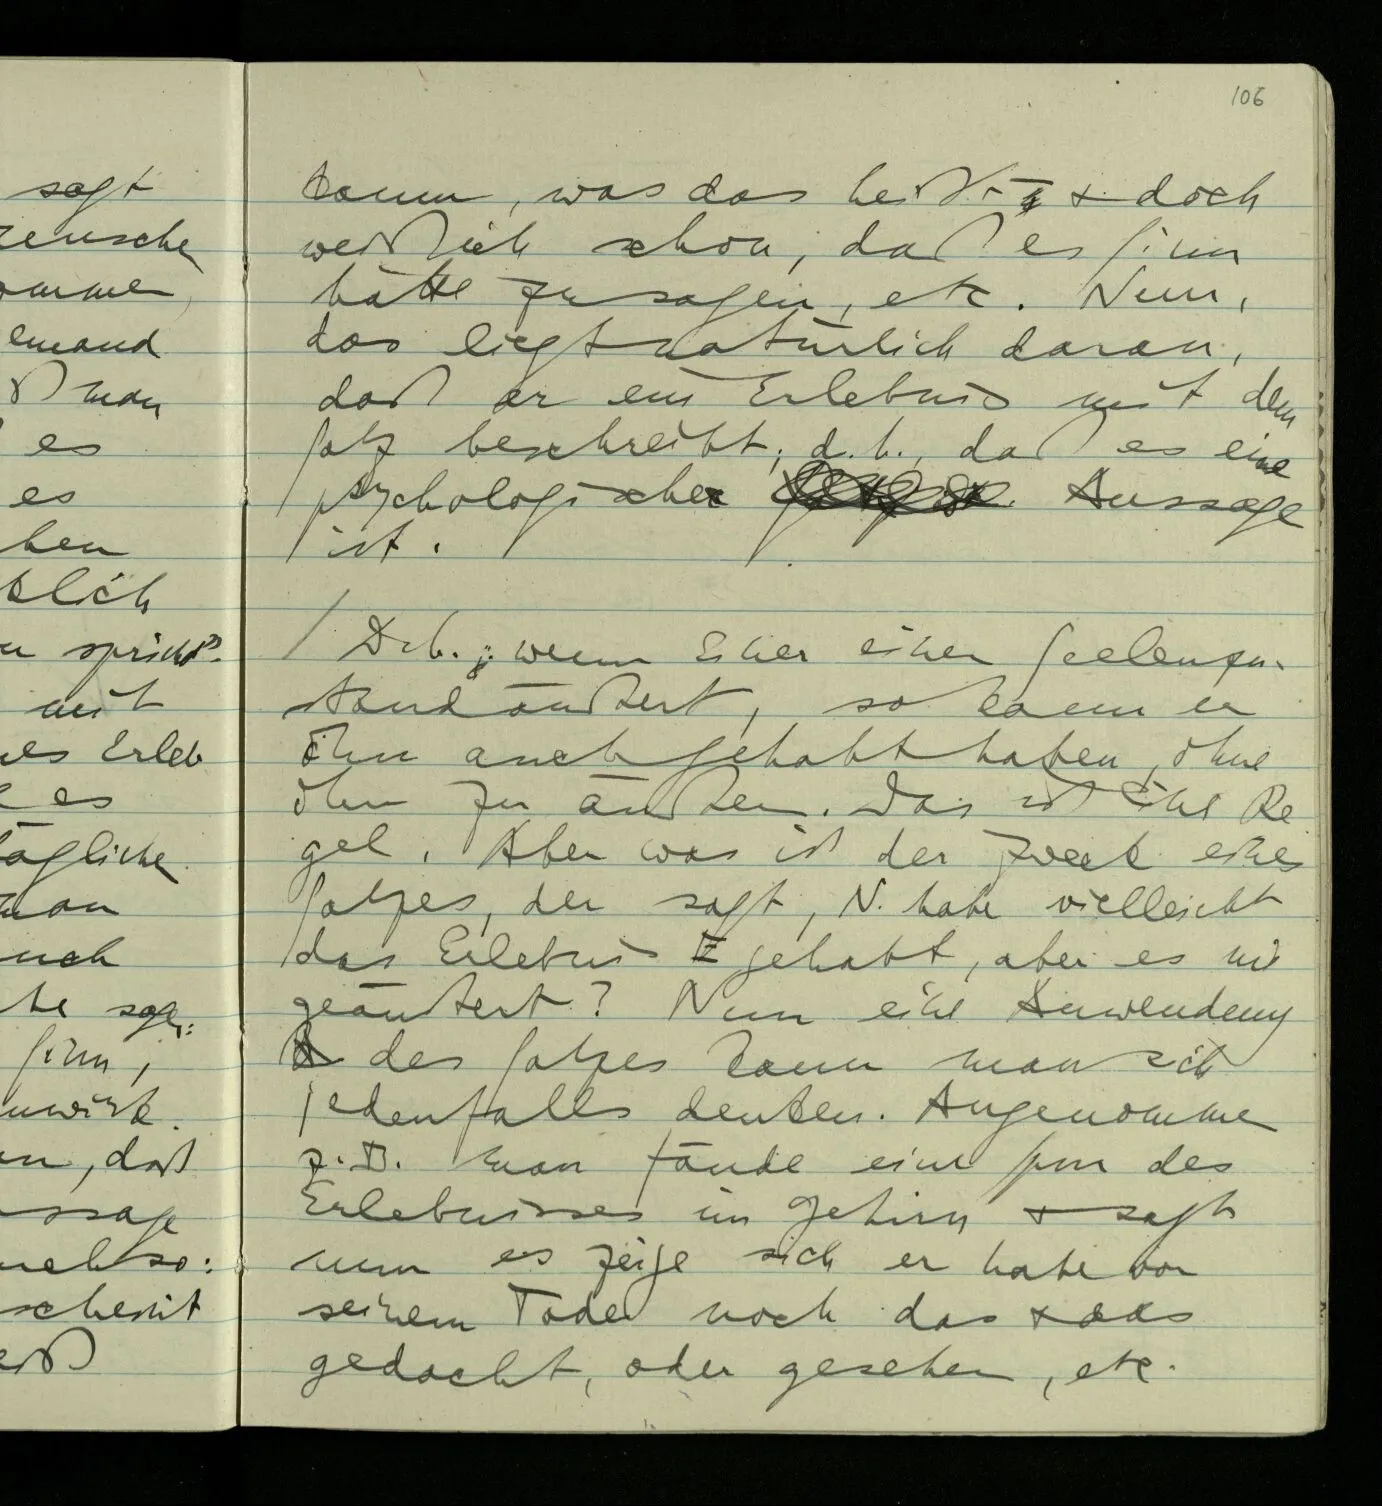 106
kaum, was das heißt & doch
weiß ich schon, daß es Sinn
hätte zu sagen, etc. Nun,
das liegt natürlich daran,
daß er ein Erlebnis mit dem
Satz beschreibt; d.h., daß es eine
psychologische Aussage
ist.
/ D.h.: wenn Einer einen Seelenzu-
stand äußert, so kann er
ihn auch gehabt haben, ohne
ihn zu äußern. Das ist eine Re
gel. Aber was ist der Zweck eines
Satzes, der sagt, N. habe vielleicht
das Erlebnis E gehabt, aber es nie
geäußert? Nun eine Anwendung
des Satzes kann man sich
jedenfalls denken. Angenommen
z.B. man fände eine Spur des
Erlebnisses im Gehirn & sagt
nun es zeige sich er habe vor
seinem Tode noch das & das
gedacht, oder gesehen, etc.
sagt
emand
man
es
es
ben
mit
es
man
auch
Sinn,
n, daß
scheint